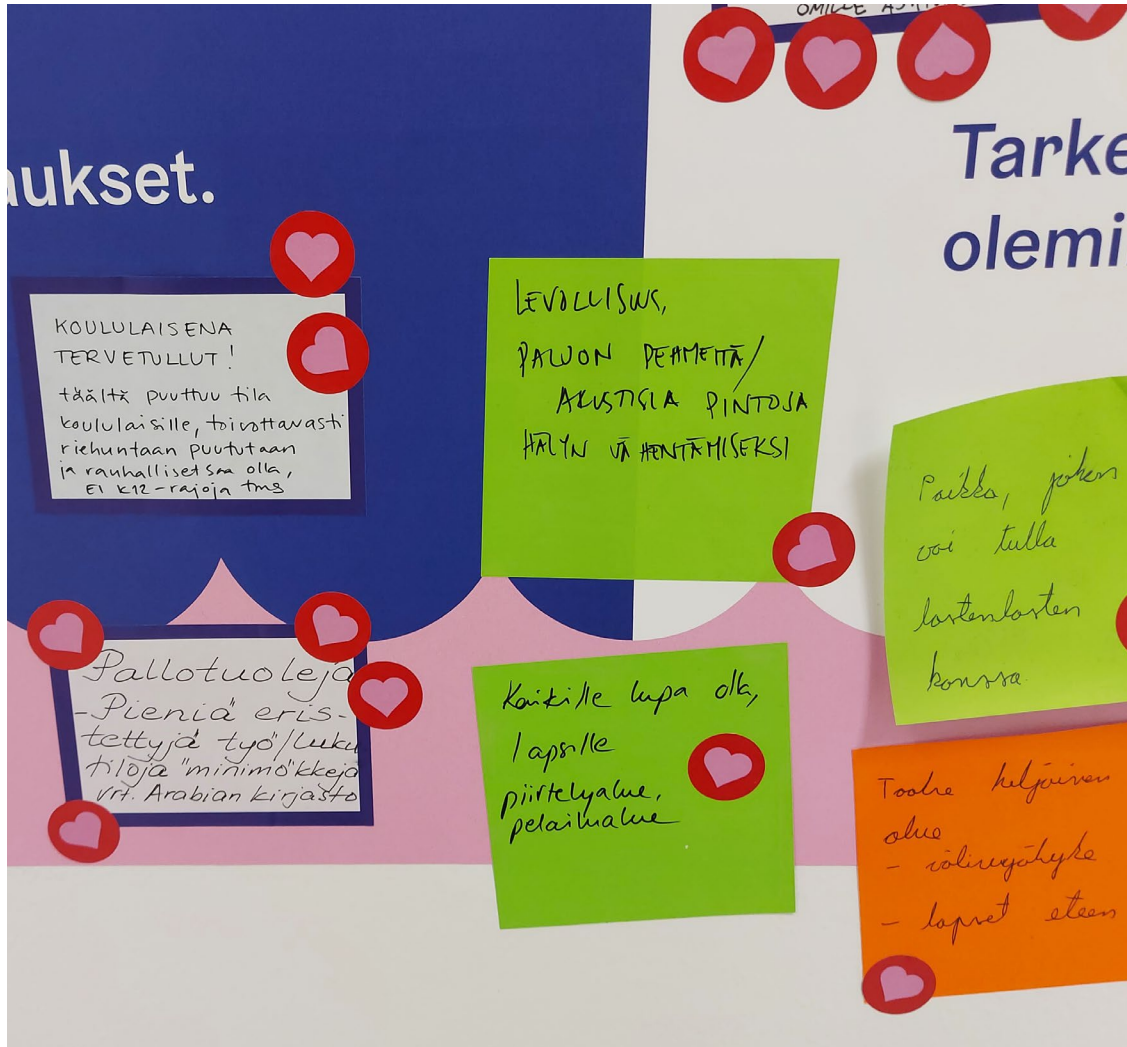 OMILLE
aukset.
Tarke
olemi
KOULULAISENA
TERVETULLUT!
täältä puuttuu tila
koululaisille, toivottavasti
riehuntaan puututaan
ja rauhalliset saa olla,
EI K12-rajoja tms
LEVOLLISUUS,
PALJON PEHMEITÄ/
AKUSTISIA PINTOJA
HÄLYN VÄHENTÄMISEKSI
Paikka, johon
voi tulla
lastenlasten
kanssa.
Pallotuoleja
-Pieniä eris-
tettyjä työ/luku
tiloja "minimökkejä
vrt. Arabian kirjasto
Kaikille lupa olla,
lapsille
piirtelyalue,
pelailualue
hiljainen
alue
-
- lapset eteen